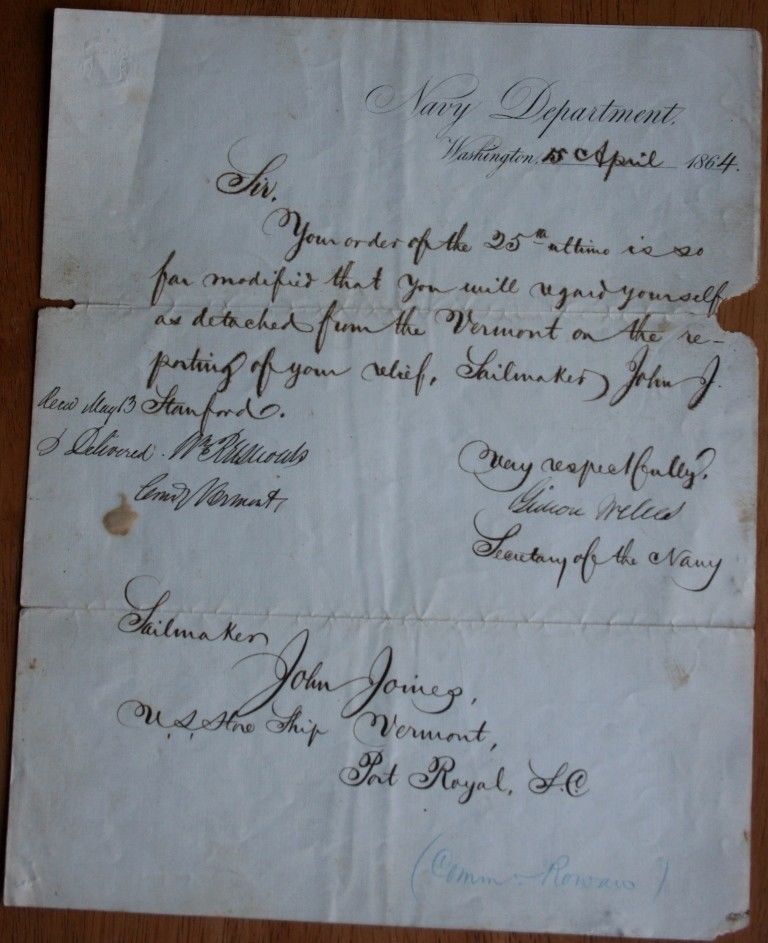 Navy Department.
Washington, 5 April 1864.
Sir,
Your order of the 25th ultimo is so
far modified that you will regard yourself
as detached from the Vermont on the re-
porting of your relief, Sailmaker John J.
Stamford.
Recd May 13
& Delivered.
Comdg Vermont
Very respectfully,
Gideon Welles
Secretary of the Navy
Sailmaker
John Joines,
U.S. Store Ship Vermont,
Port Royal, S.C.
(Comm. Rowan)